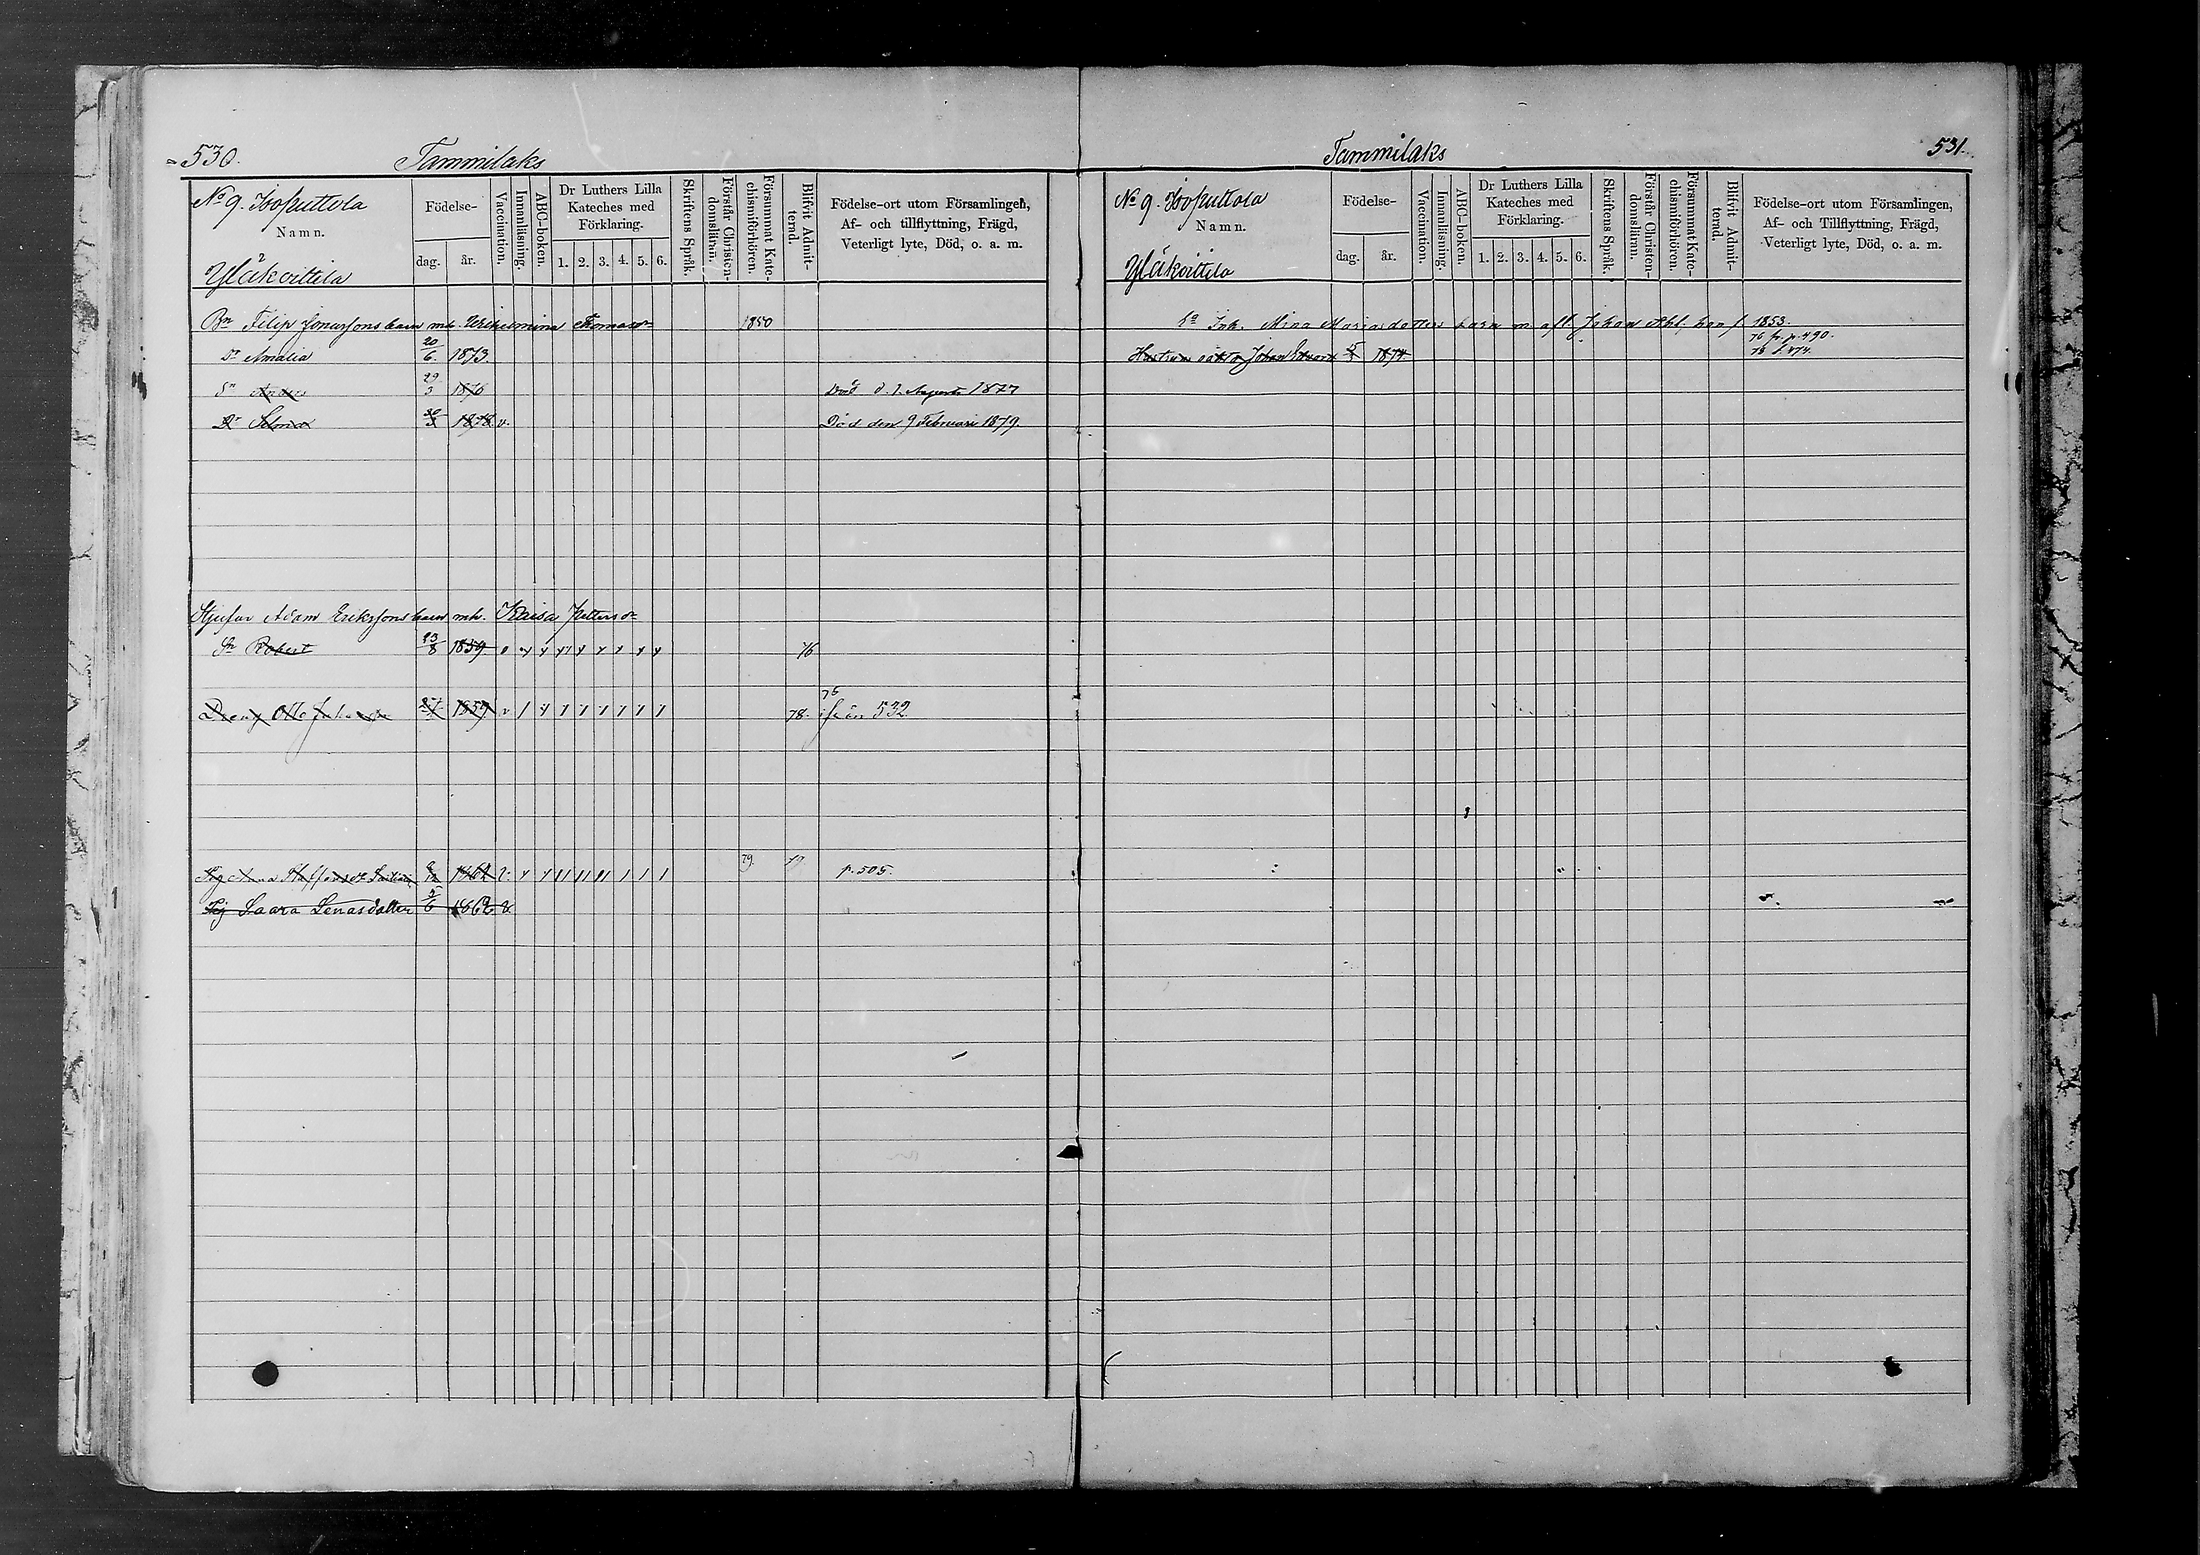 530.
Tammilaks
No 9.
Namn.
Yläkoittila
Födelse-
dag.
år.
Vaccination.
Innanläsning.
ABC-boken.
Dr Luthers Lilla
Kateches med
Förklaring.
1. 2. 3. 4. 5. 6.
Skriftens Språk.
Förstår Christen-
domsläran.
Försummat Kate-
chismiförhören.
Blifvit Admit-
terad.
Födelse-ort utom Församlingen,
Af- och tillflyttning, Frägd,
Veterligt lyte, Död, o. a. m.
Bn Filip barn m. Thomasdr 1850
Dr Amalia 20/6 1873.
Sn Anders 29/3 1876 Död d. 1. Augusti 1877
Dr Selma 1878. v. Död den 9 Februari 1879.
Adam Erikssons barn m. Kaisa Pettersdr
Sn Robert 23/8 1859
Dreng Otto 1859 v 78. från 532
76
Anna 79. 77 p. 505.
Pig Saara Lenasdotter 5/6 1862 v.
Tammilaks
531.
No 9.
Namn.
Yläkoittila
Födelse-
dag.
år.
Vaccination.
Innanläsning.
ABC-boken.
Dr Luthers Lilla
Kateches med
Förklaring.
1. 2. 3. 4. 5. 6.
Skriftens Språk.
Förstår Christen-
domsläran.
Försummat Kate-
chismiförhören.
Blifvit Admit-
terad.
Födelse-ort utom Församlingen,
Af- och Tillflyttning, Frägd,
Veterligt lyte, Död, o. a. m.
Inh. Mina Mariasdotters barn m afl. Johan hon f 1853.
76 fr p. 490.
Johan Edvard 1874